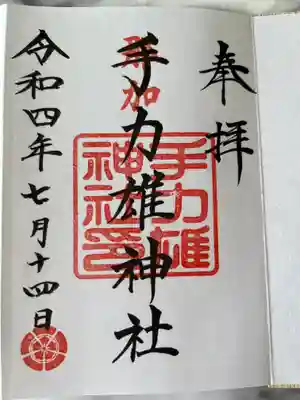 奉拝
那加
手力雄神社
手力雄
神社印
令和四年七月十四日